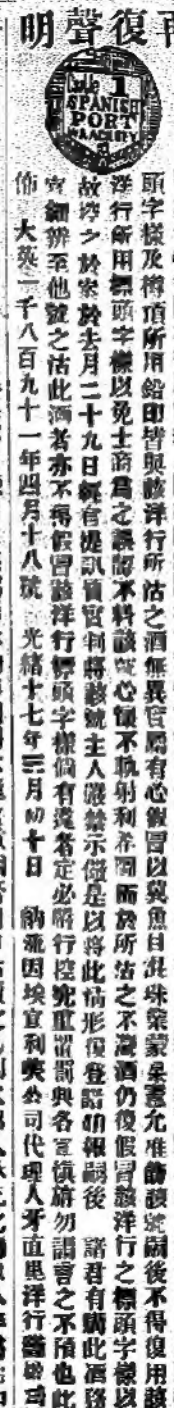 再復聲明
Code 1
SPANISH
PORT
頭字樣及樽頂所用鉛印皆與該洋行所沽之酒無異官屬有心假冒以冀魚目混珠業蒙臬憲允准飭該號嗣後不得復用該
洋行所用標頭字樣以免士商為之誤認不料該號心懷不軌射利弁罔而於所沽之不灣酒仍復假冒該洋行之標頭字樣以
故控之於案於去月二十九日經官提訊質官判將該號主人嚴禁示儆是以將此情形復登諸日報嗣後 諸君有購此酒務
宜細辨至他號之沽此酒者亦不得假冒該洋行標頭字樣倘有違者定必照行控究重從罰與各宜慎旃勿謂言之不預也此
佈 大英一千八百九十一年四月十八號 光緒十七年三月初十日 代理人牙直里洋行